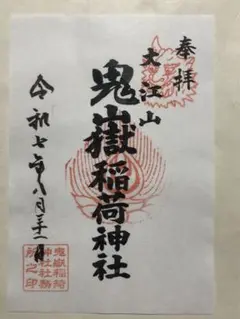 奉拝
大江山
鬼嶽稲荷神社
令和七年八月三十一日
鬼嶽稲荷
神社社務
所之印